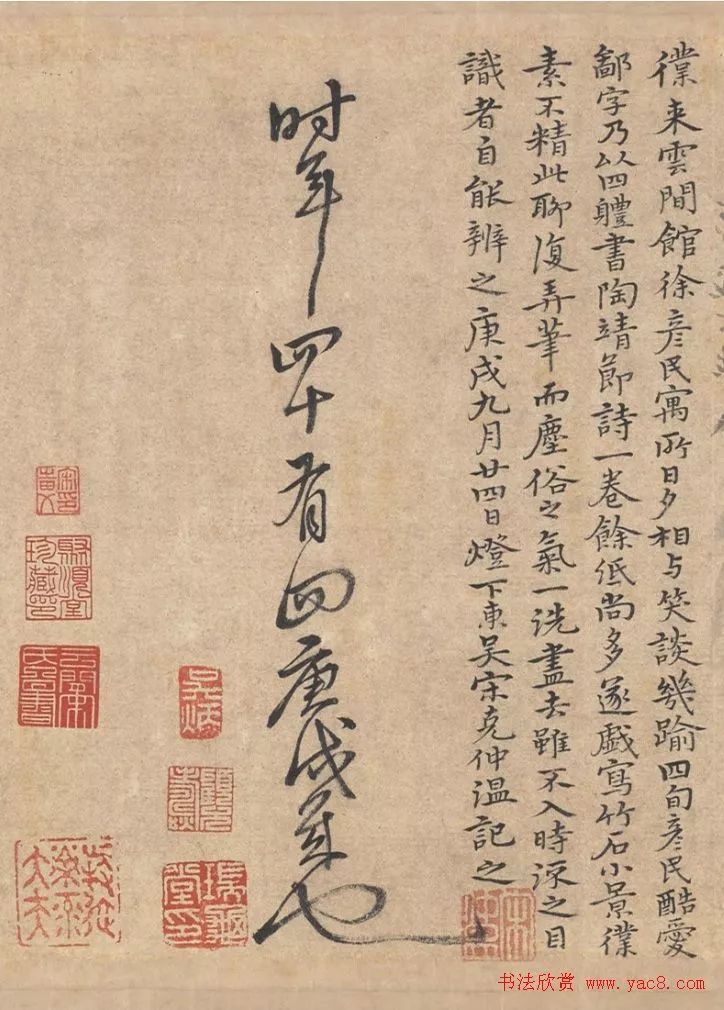 僕来雲間館徐彦民寓所日夕相与笑談幾踰四旬彦民酷愛
鄙字乃以四體書陶靖節詩一卷餘紙尚多遂戲寫竹石小景僕
素不精此聊復弄筆而塵俗之氣一洗盡去雖不入時流之目
識者自能辨之庚戌九月廿四日燈下東吴宋克仲温記之
时年四十有四庚戌歲也
吴炳
聚順堂
珍藏印
书法欣赏 www.yac8.com